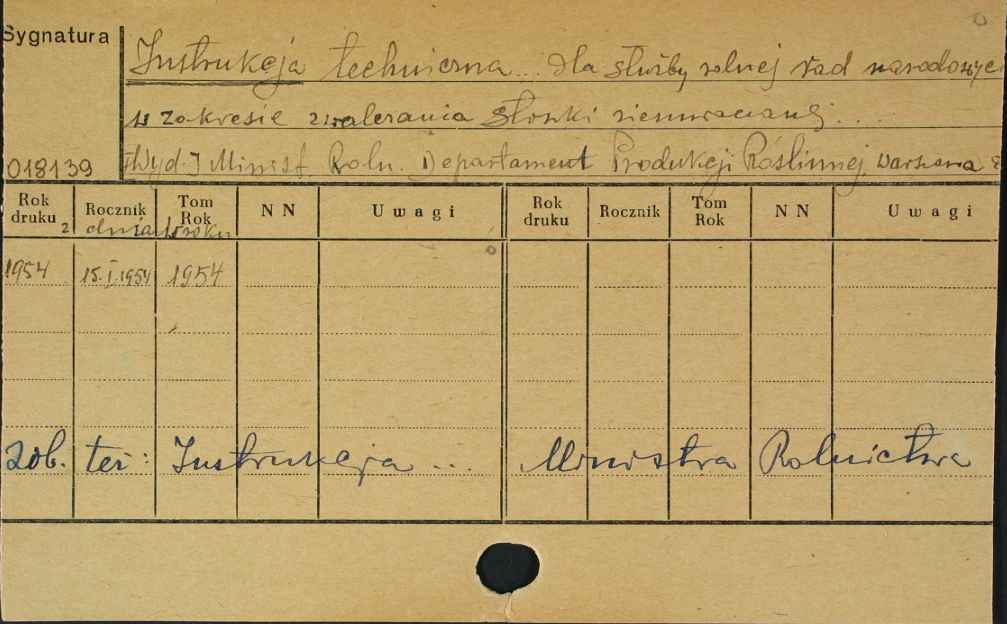 Sygnatura
Instrukcja techniczna... dla służby rolnej rad narodowyc
w zakresie zwalczania stonki ziemniaczanej...
018139
[Wyd.] Minist. Roln. Departament Produkcji Roślinnej. Warszawa
Rok druku Rocznik Tom Rok NN Uwagi Rok druku Rocznik Tom Rok NN Uwagi
z dnia roku
1954 15.I.1954 1954
Zob. też: Instrukcja ... Ministra Rolnictwa